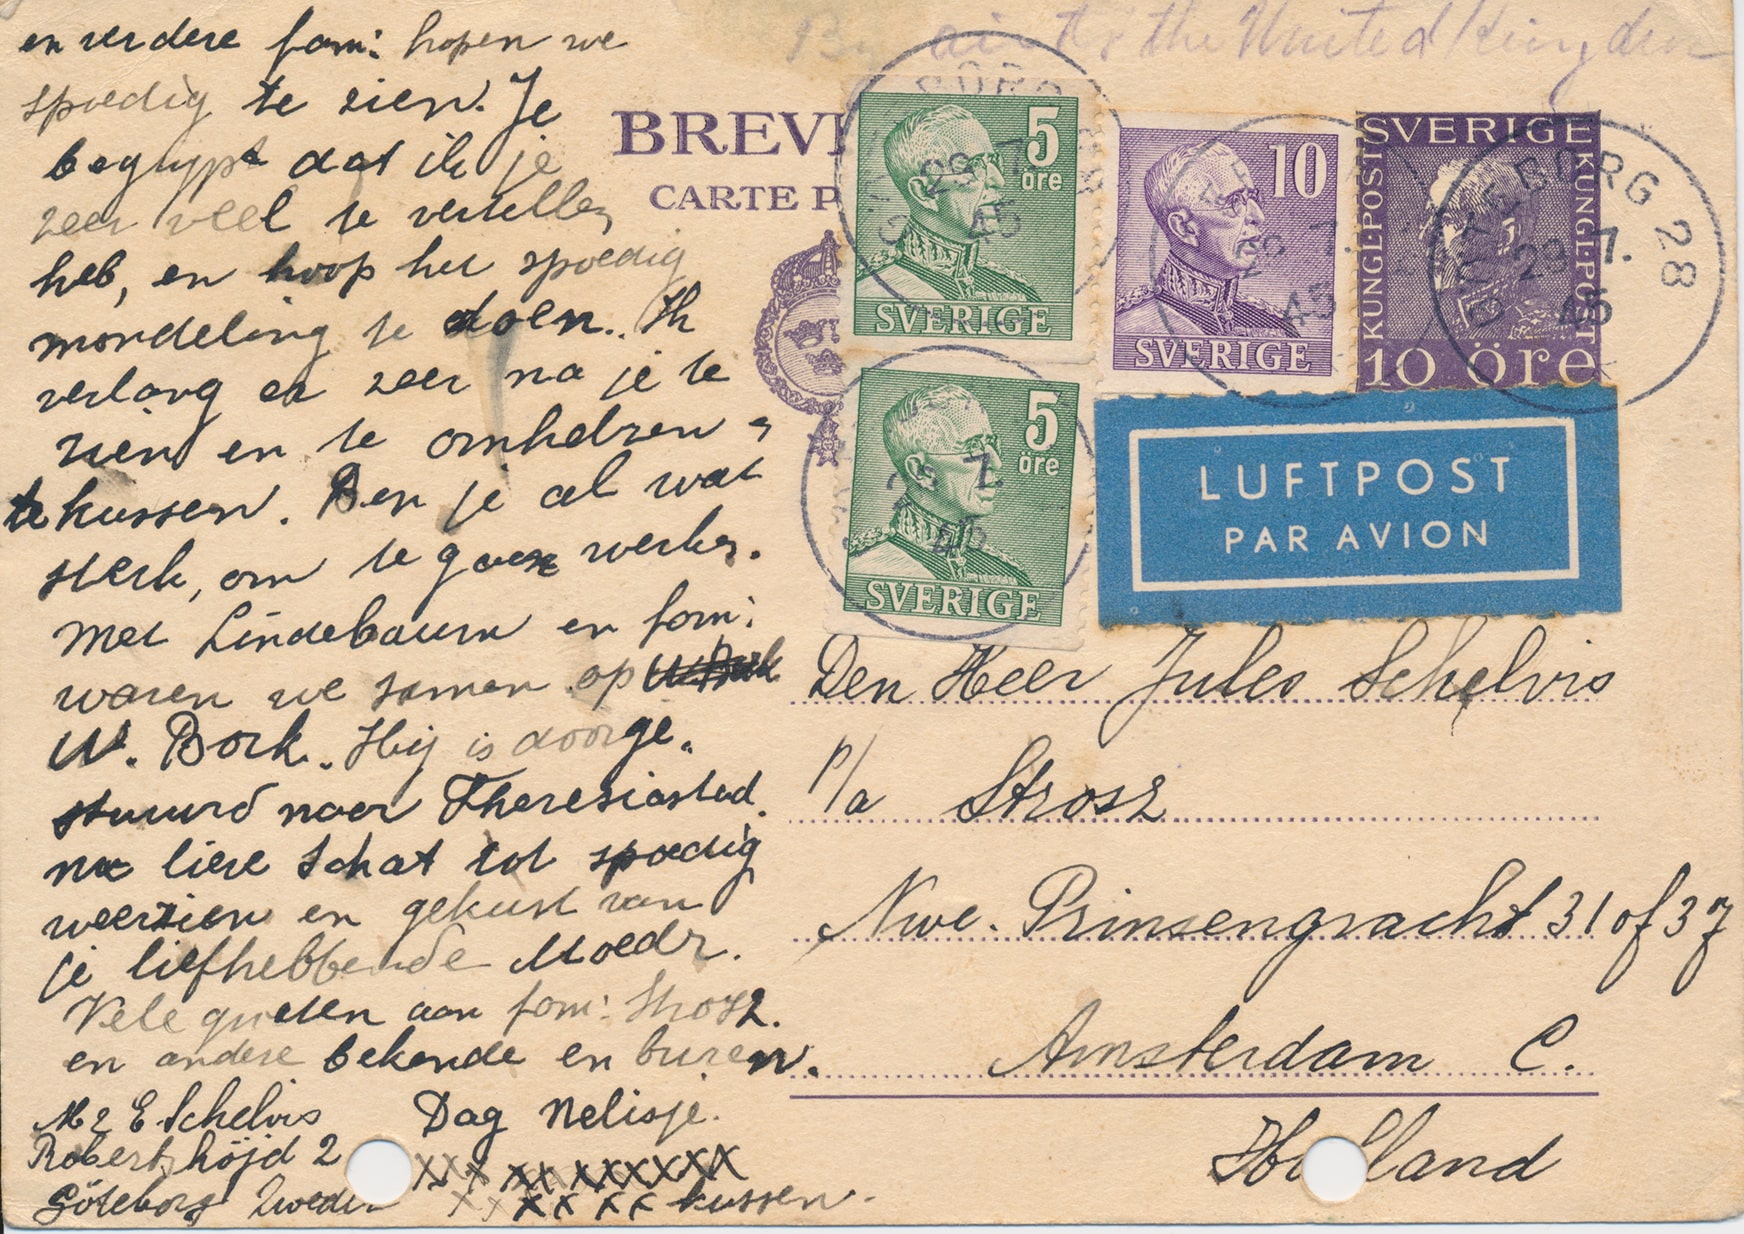 By air to the United Kingdom
en verdere fam: hopen we
spoedig te zien. Je
begrypt dat ik je
zeer veel te vertellen
heb, en hoop het spoedig
mondeling te doen. Ik
verlang er zeer na je te
zien en te omhelzen
te kussen. Ben je al wat
sterk, om te gaan werken.
Met Lindebaum en fam:
waren we samen op
W. Bork. Hij is doorge-
stuurd naar Theresiastad.
nu lieve schat tot spoedig
weerzien en gekust van
je liefhebbende Moedr.
Vele groeten aan fam: Strosz.
en andere bekende en buren.
Mr E Schelvis
Robertshöjd 2
Göteborg Zweden
Dag Nelisje.
xxx xx xxxxxxx
xx xx xx kussen.
BREV
CARTE P
5
öre
SVERIGE
5
öre
SVERIGE
10
SVERIGE
SVERIGE
KUNGL·POST
KUNGL·POST
10 öre
GÖTEBORG 28
29 7.
45
LUFTPOST
PAR AVION
Den Heer Jules Schelvis
p/a Strosz
Nwe. Prinsengracht 31 of 37
Amsterdam C.
Holland